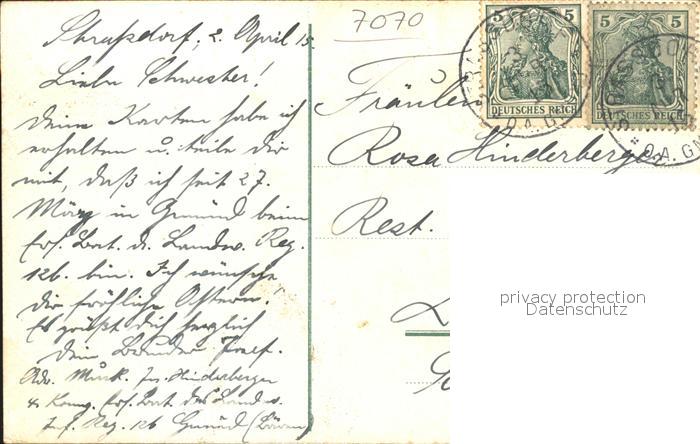 7070
Straßdorf, 2. April 15.
Liebe Schwester!
Deine Karten habe ich
erhalten u. teile dir
mit, daß ich seit 27.
März in Gmünd beim
Ers. Bat. d. Landw. Reg.
126. bin. Ich wünsche
dir fröhliche Ostern.
Es grüßt dich herzlich
dein Bruder Josef.
Adr. Musk. Jos. Hinderberger
4. Komp. Ers. Bat. des Landw.
Inf. Reg. 126 Gmünd
Fräulein
Rosa Hinderberger
Rest.
5 5
DEUTSCHES REICH
5 5
DEUTSCHES REICH
O.A. GM
privacy protection
Datenschutz